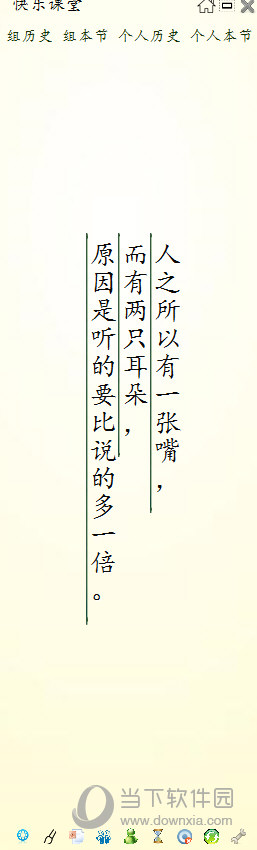 快乐课堂
组历史 组本节 个人历史 个人本节
人之所以有一张嘴，
而有两只耳朵，
原因是听的要比说的多一倍。
当下软件园
www.downxia.com